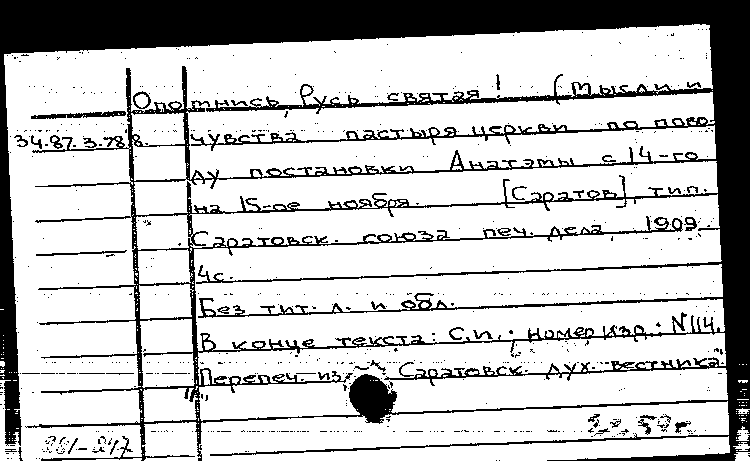 Опомнись, Русь святая! (Мысли и
34.87.3.788. чувства пастыря церкви по пово-
ду постановки Анатэмы с 14-го
на 15-ое ноября. [Саратов], тип.
Саратовск. союза печ. дела, 1909.
4с.
Без тит. л. и обл.
В конце текста: С.п.; номер изд.: N114.
Перепеч. из „Саратовск. дух. вестника"
261-247